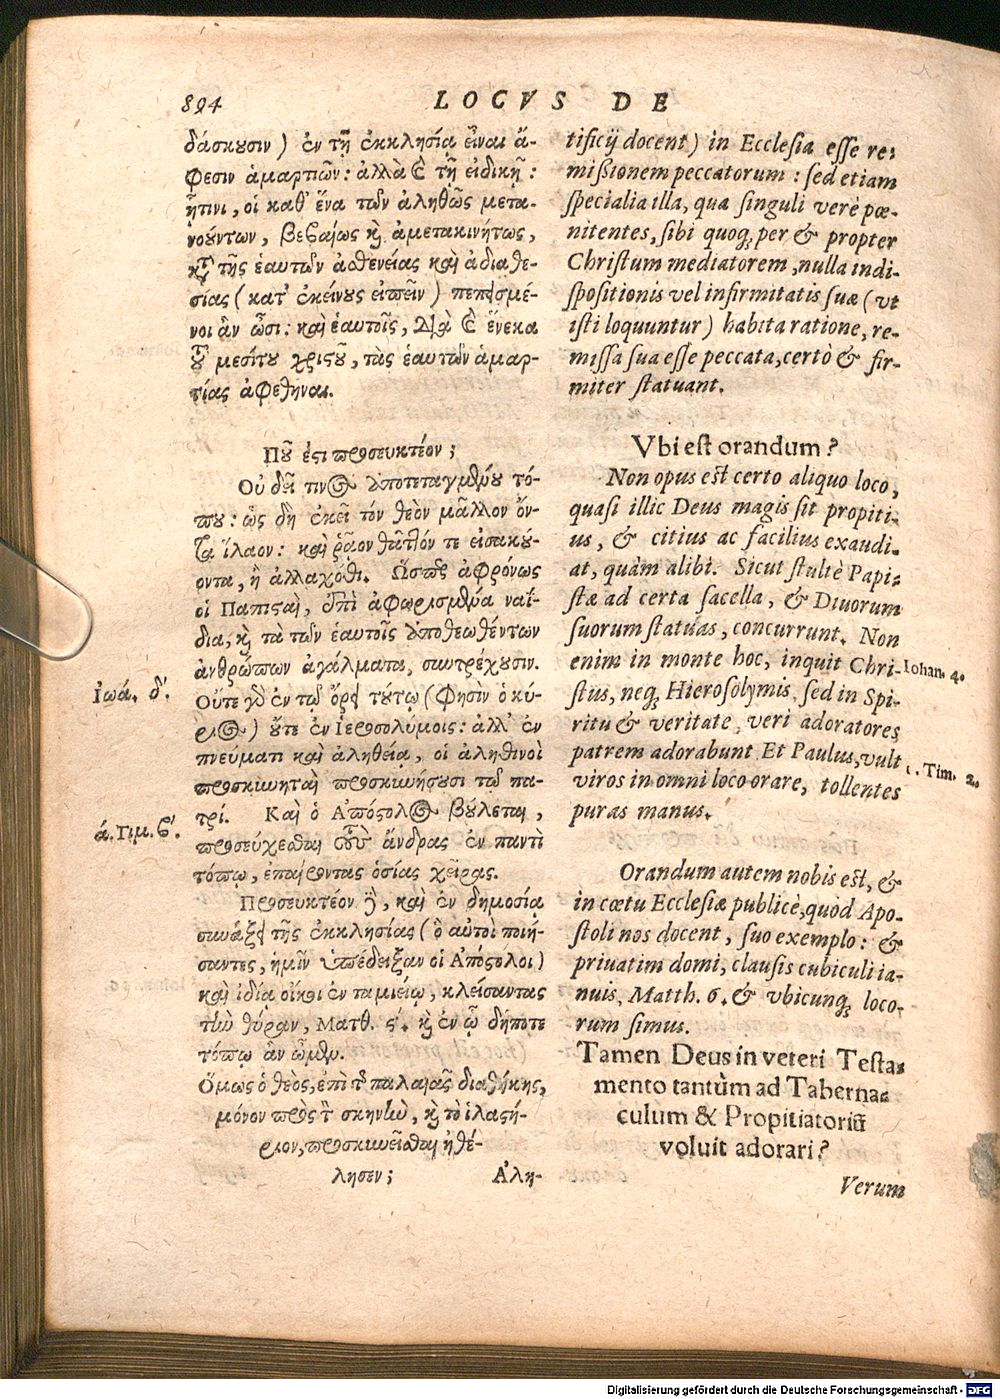 894
LOCVS DE
δάσκουσιν) ἐν τῇ ἐκκλησίᾳ εἶναι ἄ-
φεσιν ἁμαρτιῶν: ἀλλὰ καὶ τῇ εἰδικῇ:
ᾗτινι, οἱ καθ' ἕνα τῶν ἀληθῶς μετα-
νοούντων, βεβαίως καὶ ἀμετακινήτως,
τῆς ἑαυτῶν ἀσθενείας καὶ ἀδιαθε-
σίας (κατ' ἐκείνους εἰπεῖν) πεπεισμέ-
νοι ἂν ὦσι: καὶ ἑαυτοῖς, διὰ καὶ ἕνεκα
τοῦ μεσίτου χριστοῦ, τὰς ἑαυτῶν ἁμαρ-
τίας ἀφεθῆναι.
Ποῦ ἐστι προσευκτέον;
Οὐ δεῖ τινος ἀποτεταγμένου τό-
που: ὡς δὴ ἐκεῖ τόν θεὸν μᾶλλον ὄν-
τα ἵλαον: καὶ ῥᾷον θᾶττόν τε εἰσακού-
οντα, ἢ ἀλλαχόθι. Ὥσπερ ἀφρόνως
οἱ Παπισταὶ, ἐπὶ ἀφωρισμένα ναΐ-
δια, καὶ τὰ τῶν ἑαυτοῖς ἀποθεωθέντων
ἀνθρώπων ἀγάλματα, συντρέχουσιν.
Οὔτε γὸ ἐν τῷ ὄρει τούτῳ (φησὶν ὁ κύ-
ριος) οὔτε ἐν Ἱεροσολύμοις: ἀλλ' ἐν
πνεύματι καὶ ἀληθείᾳ, οἱ ἀληθινοὶ
προσκυνηταὶ προσκυνήσουσι τῷ πα-
τρί. Καὶ ὁ Ἀπόστολος βούλεται,
προσεύχεσθαι τοὺς ἄνδρας ἐν παντὶ
τόπῳ, ἐπαίροντας ὁσίας χεῖρας.
Προσευκτέον δὲ, καὶ ἐν δημοσίᾳ
συνάξει τῆς ἐκκλησίας (ὃ αὐτοὶ ποιή-
σαντες, ἡμῖν ὑπέδειξαν οἱ Ἀπόστολοι)
καὶ ἰδίᾳ οἴκοι ἐν ταμιείῳ, κλείσαντας
τὴν θύραν, Ματθ. ϛ'. καὶ ἐν ᾧ δήποτε
τόπῳ ἂν ὦμεν.
Ὅμως ὁ θεὸς, ἐπὶ τῆς παλαιᾶς διαθήκης,
μόνον πρὸς τὴν σκηνὴν, καὶ τὸ ἱλαστή-
ριον, προσκυνεῖσθαι ἠθέ-
λησεν;
Ἀλη-
Ἰωά. δ'.
ά. Τιμ. β'.
tificij docent) in Ecclesia esse re-
missionem peccatorum: sed etiam
specialia illa, qua singuli verè pœ-
nitentes, sibi quoq; per & propter
Christum mediatorem, nulla indi-
spositionis vel infirmitatis suæ (vt
isti loquuntur) habita ratione, re-
missa sua esse peccata, certò & fir-
miter statuant.
Vbi est orandum?
Non opus est certo aliquo loco,
quasi illic Deus magis sit propiti-
us, & citius ac facilius exaudi-
at, quàm alibi. Sicut stultè Papi-
stæ ad certa sacella, & Diuorum
suorum statuas, concurrunt. Non
enim in monte hoc, inquit Chri-
stus, neq; Hierosolymis, sed in Spi-
ritu & veritate, veri adoratores
patrem adorabunt. Et Paulus, vult
viros in omni loco orare, tollentes
puras manus.
Orandum autem nobis est, &
in cœtu Ecclesiæ publicè, quòd Apo-
stoli nos docent, suo exemplo: &
priuatim domi, clausis cubiculi ia-
nuis, Matth. 6. & vbicunq; loco-
rum simus.
Tamen Deus in veteri Testa-
mento tantùm ad Taberna-
culum & Propitiatoriū
voluit adorari?
Verum
Iohan. 4.
1. Tim. 2.
Digitalisierung gefördert durch die Deutsche Forschungsgemeinschaft - DFG